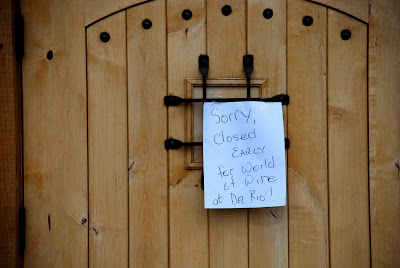 Sorry,
Closed
EARLY
for World
of Wine
at Del Rio!